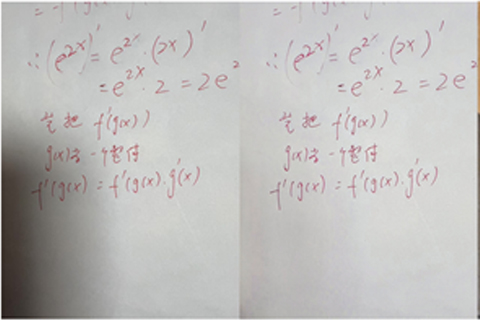 ∴(e^2x)' = e^2x·(2x)'
= e^2x·2 = 2e^2
先把 f'(g(x))
g(x)当一个整体
f'(g(x) = f'(g(x)·g'(x)
∴(e^2x)' = e^2x·(2x)'
= e^2x·2 = 2e^2
先把 f'(g(x))
g(x)当一个整体
f'(g(x) = f'(g(x)·g'(x)